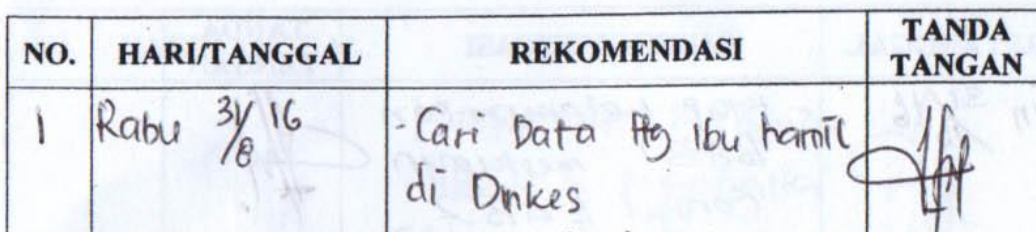 NO. HARI/TANGGAL REKOMENDASI TANDA TANGAN
1 Rabu 31/8 16 - Cari Data ttg Ibu hamil
di Dinkes